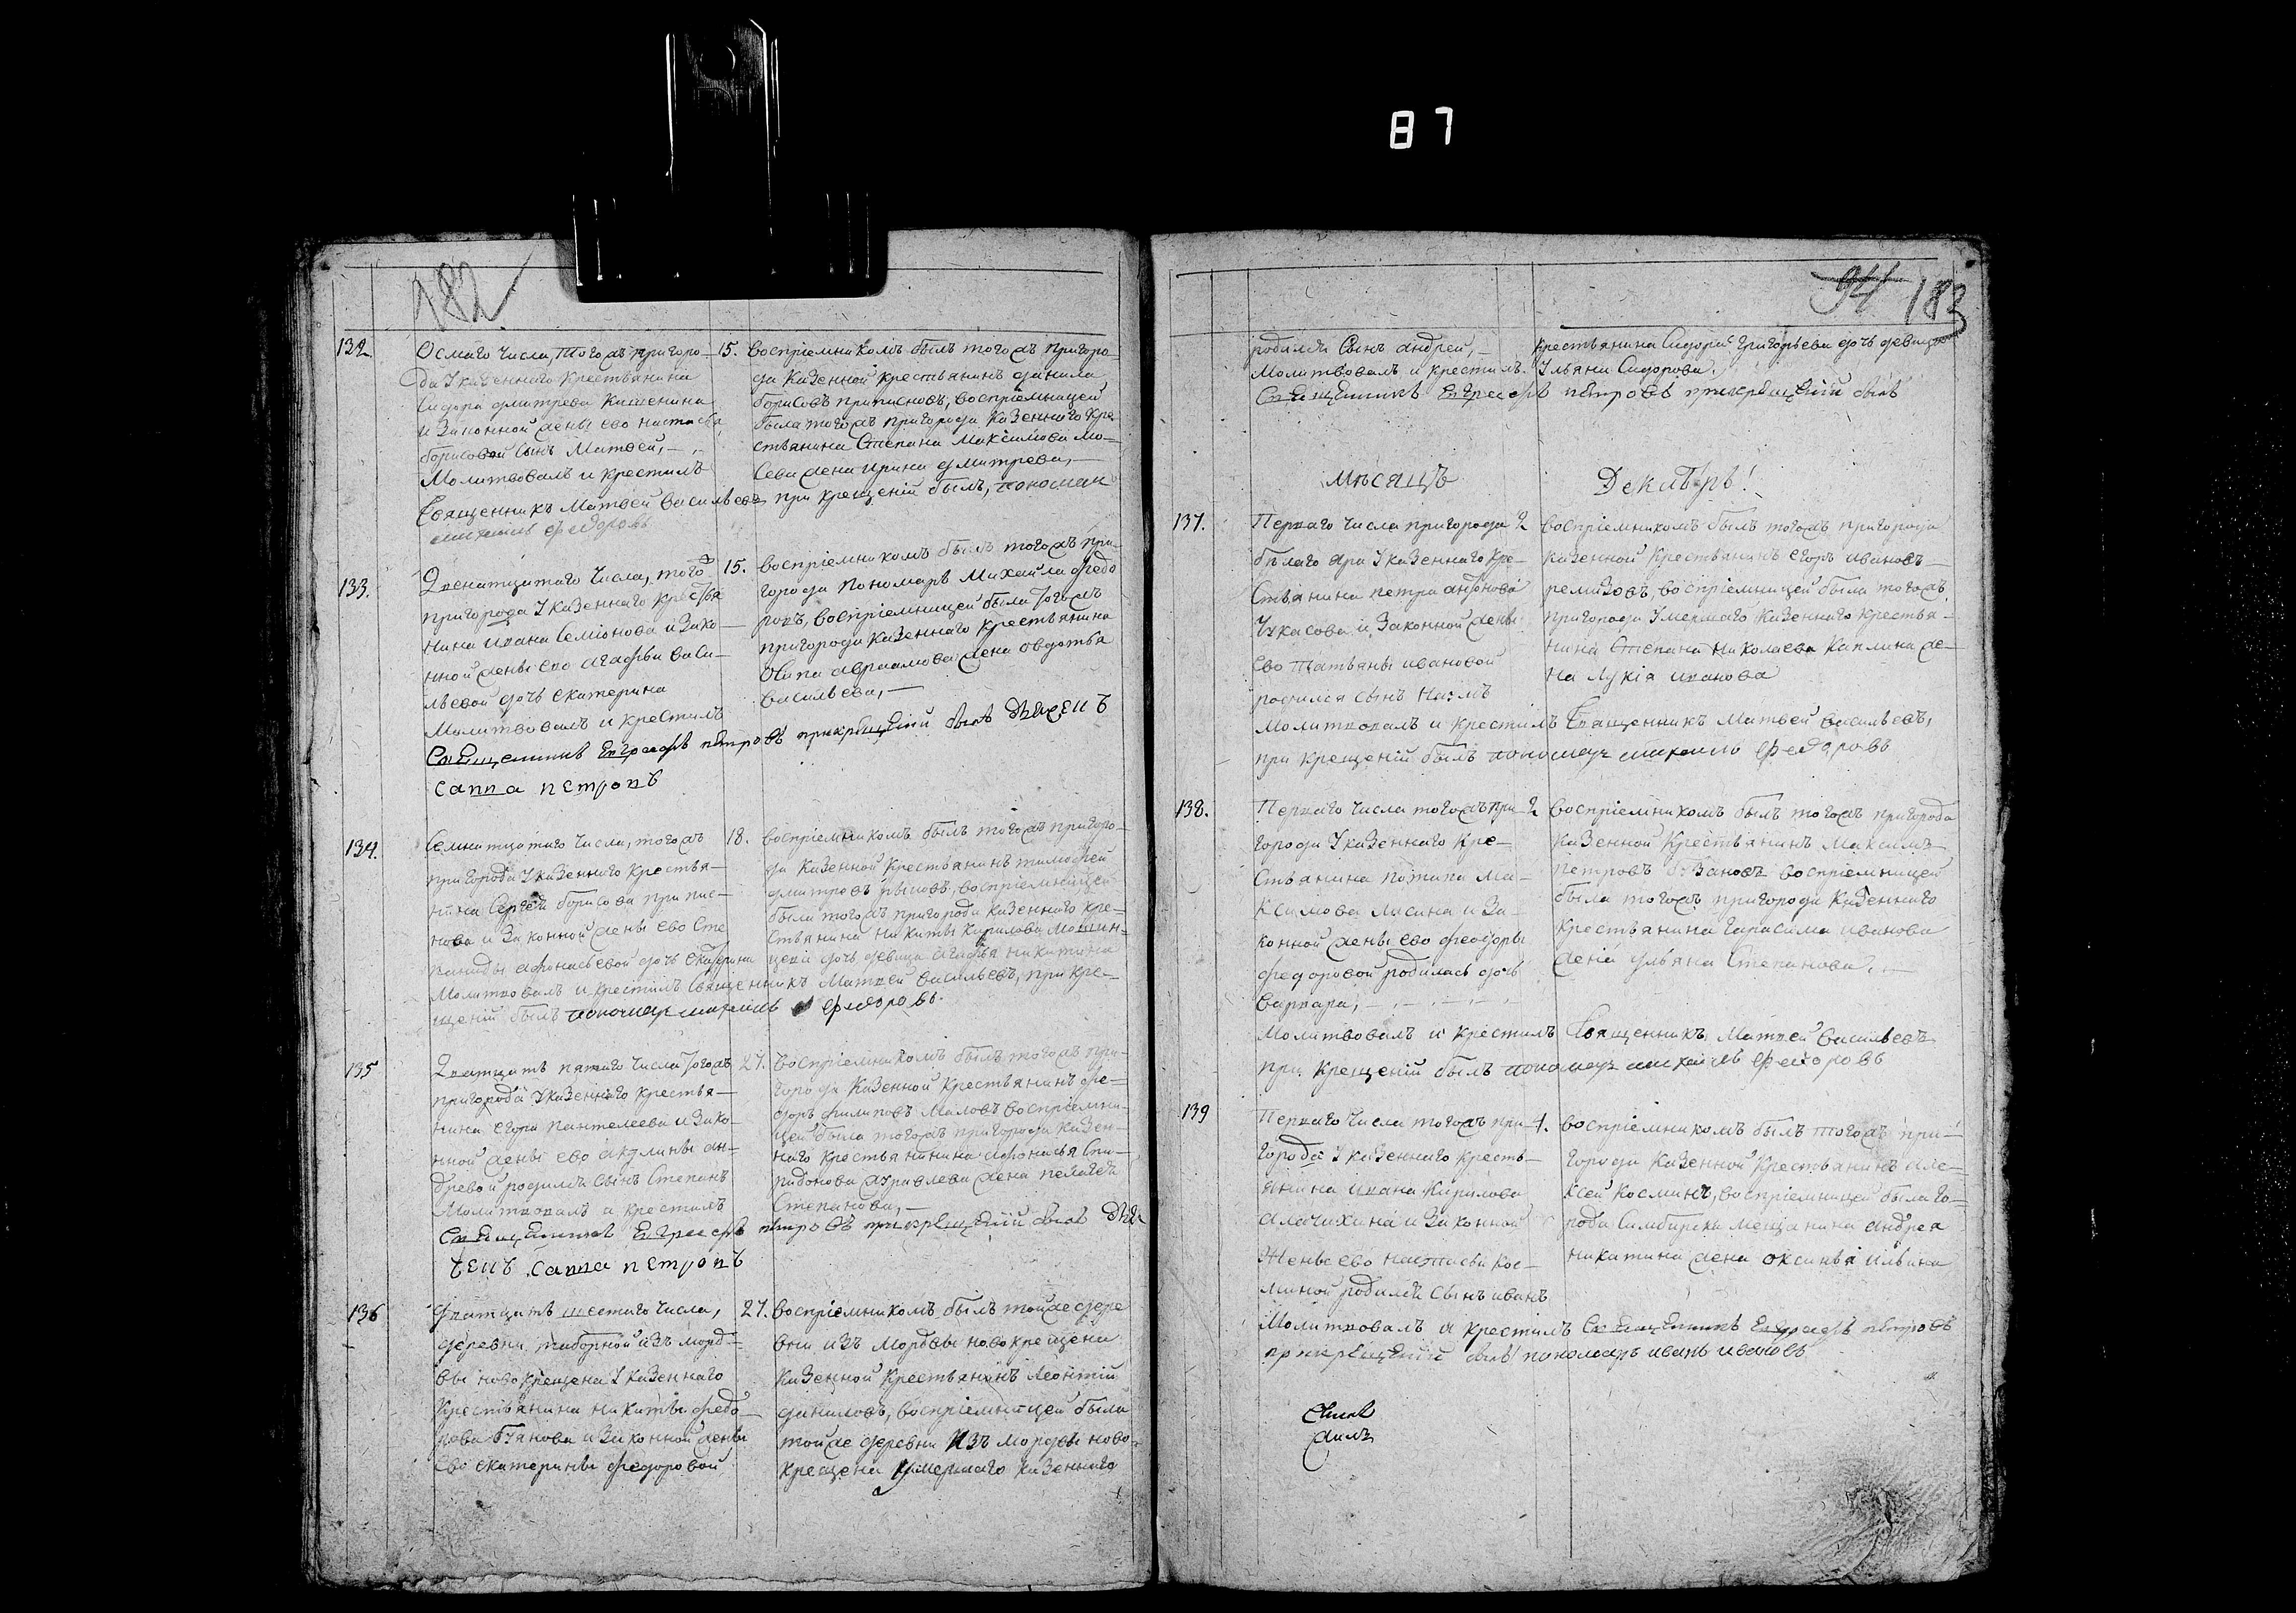 87
182
132. Осмаго числа, тогожъ пригоро-
да у казеннаго крестьянина
Сидора дмитрева
и законной жены ево настасьи
борисовой сынъ Матвей, —
Молитвовалъ и крестилъ
Священникъ Матвей васильевъ при крещеній былъ, пономар
михаилъ федоровъ
15. воспріемникомъ былъ тогожъ пригоро-
да казенной крестьянинъ данила
борисовъ приписновъ, воспріемницей
была тогожъ пригорода казеннаго кре-
стьянина Степана Максимова Мо-
сева жена ирина дмитрева, —
133. Двенатцатаго числа, тогожъ
пригорода у казеннаго крестья
нина ивана Семіонова и зако-
нной жены ево агафьи васи-
льевой дочь екатерина
Молитвовалъ и крестилъ
Священникъ Евграфъ петровъ прикрещеній былъ дьяченъ
Савва петровъ
15. воспріемникомъ былъ тогожъ при-
города пономарь Михайла федо
ровъ, воспріемницей была тогожъ
пригорода казеннаго крестьянина
Осипа авраамова жена овдотья
васильева, —
134. Семнатцатаго числа, тогожъ
пригорода у казеннаго крестья-
нина Сергея борисова припис-
нова и законной жены ево Сте
паниды афонасьевой дочь екатерина
Молитвовалъ и крестилъ Священникъ Матвей васильевъ, при кре-
щеній былъ пономарь михаилъ федоровъ.
18. воспріемникомъ былъ тогожъ пригоро-
да казенной крестьянинъ тимофей
дмитревъ воспріемницей
была тогожъ пригорода казеннаго кре-
стьянина никиты кирилова
дочь девица агафья никитина
135 Дватцать пятаго числа тогожъ
пригорода у казеннаго крестья-
нина егора пантелеева и зако-
нной жены ево акулины ан-
древой родился сынъ Степанъ
Молитвовалъ и крестилъ
Священникъ Евграфъ петровъ прикрещеній былъ дья-
ченъ Савва петровъ
27. воспріемникомъ былъ тогожъ при-
города казенной крестьянинъ фе-
доръ филиповъ Маловъ воспріемни-
цей была тогожъ пригорода казен-
наго крестьянинина афонасья Спи-
ридонова журавлева жена пелагея
Степанова, —
136 Дватцать шестаго числа,
деревни таборной изъ морд-
вы новокрещена у казеннаго
крестьянина никиты федо-
рова и законной жены
ево екатерины федоровой
27. воспріемникомъ былъ тойже дере
вни изъ мордвы новокрещена
казенной крестьянинъ леонтій
даниловъ, воспріемницей была
тойже деревни изъ мордвы ново-
крещена умершаго казеннаго
94 183
родился сынъ андрей, —
Молитвовалъ и крестилъ
Священникъ Евграфъ петровъ прикрещеній былъ
крестьянина Сидора григорьева дочь девица
Ульяна Сидорова.
Мѣсяцъ Декабрь!
137. Перваго числа пригорода
бѣлаго яра у казеннаго кре-
стьянина петра антонова
Чукасова и законной жены
ево татьяны ивановой
родился сынъ наумъ
Молитвовалъ и крестилъ Священникъ Матвей васильевъ,
при крещеній былъ пономарь михаилъ федоровъ
2 воспріемникомъ былъ тогожъ пригорода
казенной крестьянинъ егоръ ивановъ
ремизовъ, воспріемницей была тогожъ
пригорода умершаго казеннаго крестья-
нина Степана николаева каплина же-
на лукія иванова
138. Перваго числа тогожъ при-
города у казеннаго кре-
стьянина потапа ма-
ксимова лисина и за-
конной жены ево феодоры
федоровой родилась дочь
варвара, —
Молитвовалъ и крестилъ Священникъ Матвей васильевъ
при крещеній былъ пономарь михаилъ федоровъ
2 воспріемникомъ былъ тогожъ пригорода
казенной крестьянинъ максимъ
петровъ воспріемницей
была тогожъ пригорода казеннаго
крестьянина гарасима иванова
жена ульяна Степанова. —
139 Перваго числа тогожъ при-
города у казеннаго кресть-
янина ивана кирилова
алачихина и законной
жены ево настасьи кос-
миной родился сынъ иванъ
Молитвовалъ и крестилъ Священникъ Евграфъ петровъ
прикрещеній былъ пономарь иванъ ивановъ
1. воспріемникомъ былъ тогожъ при-
города казенной крестьянинъ але-
ксей косминъ, воспріемницей была го-
рода Симбирска мещанина андрея
никитина жена оксинья ильина